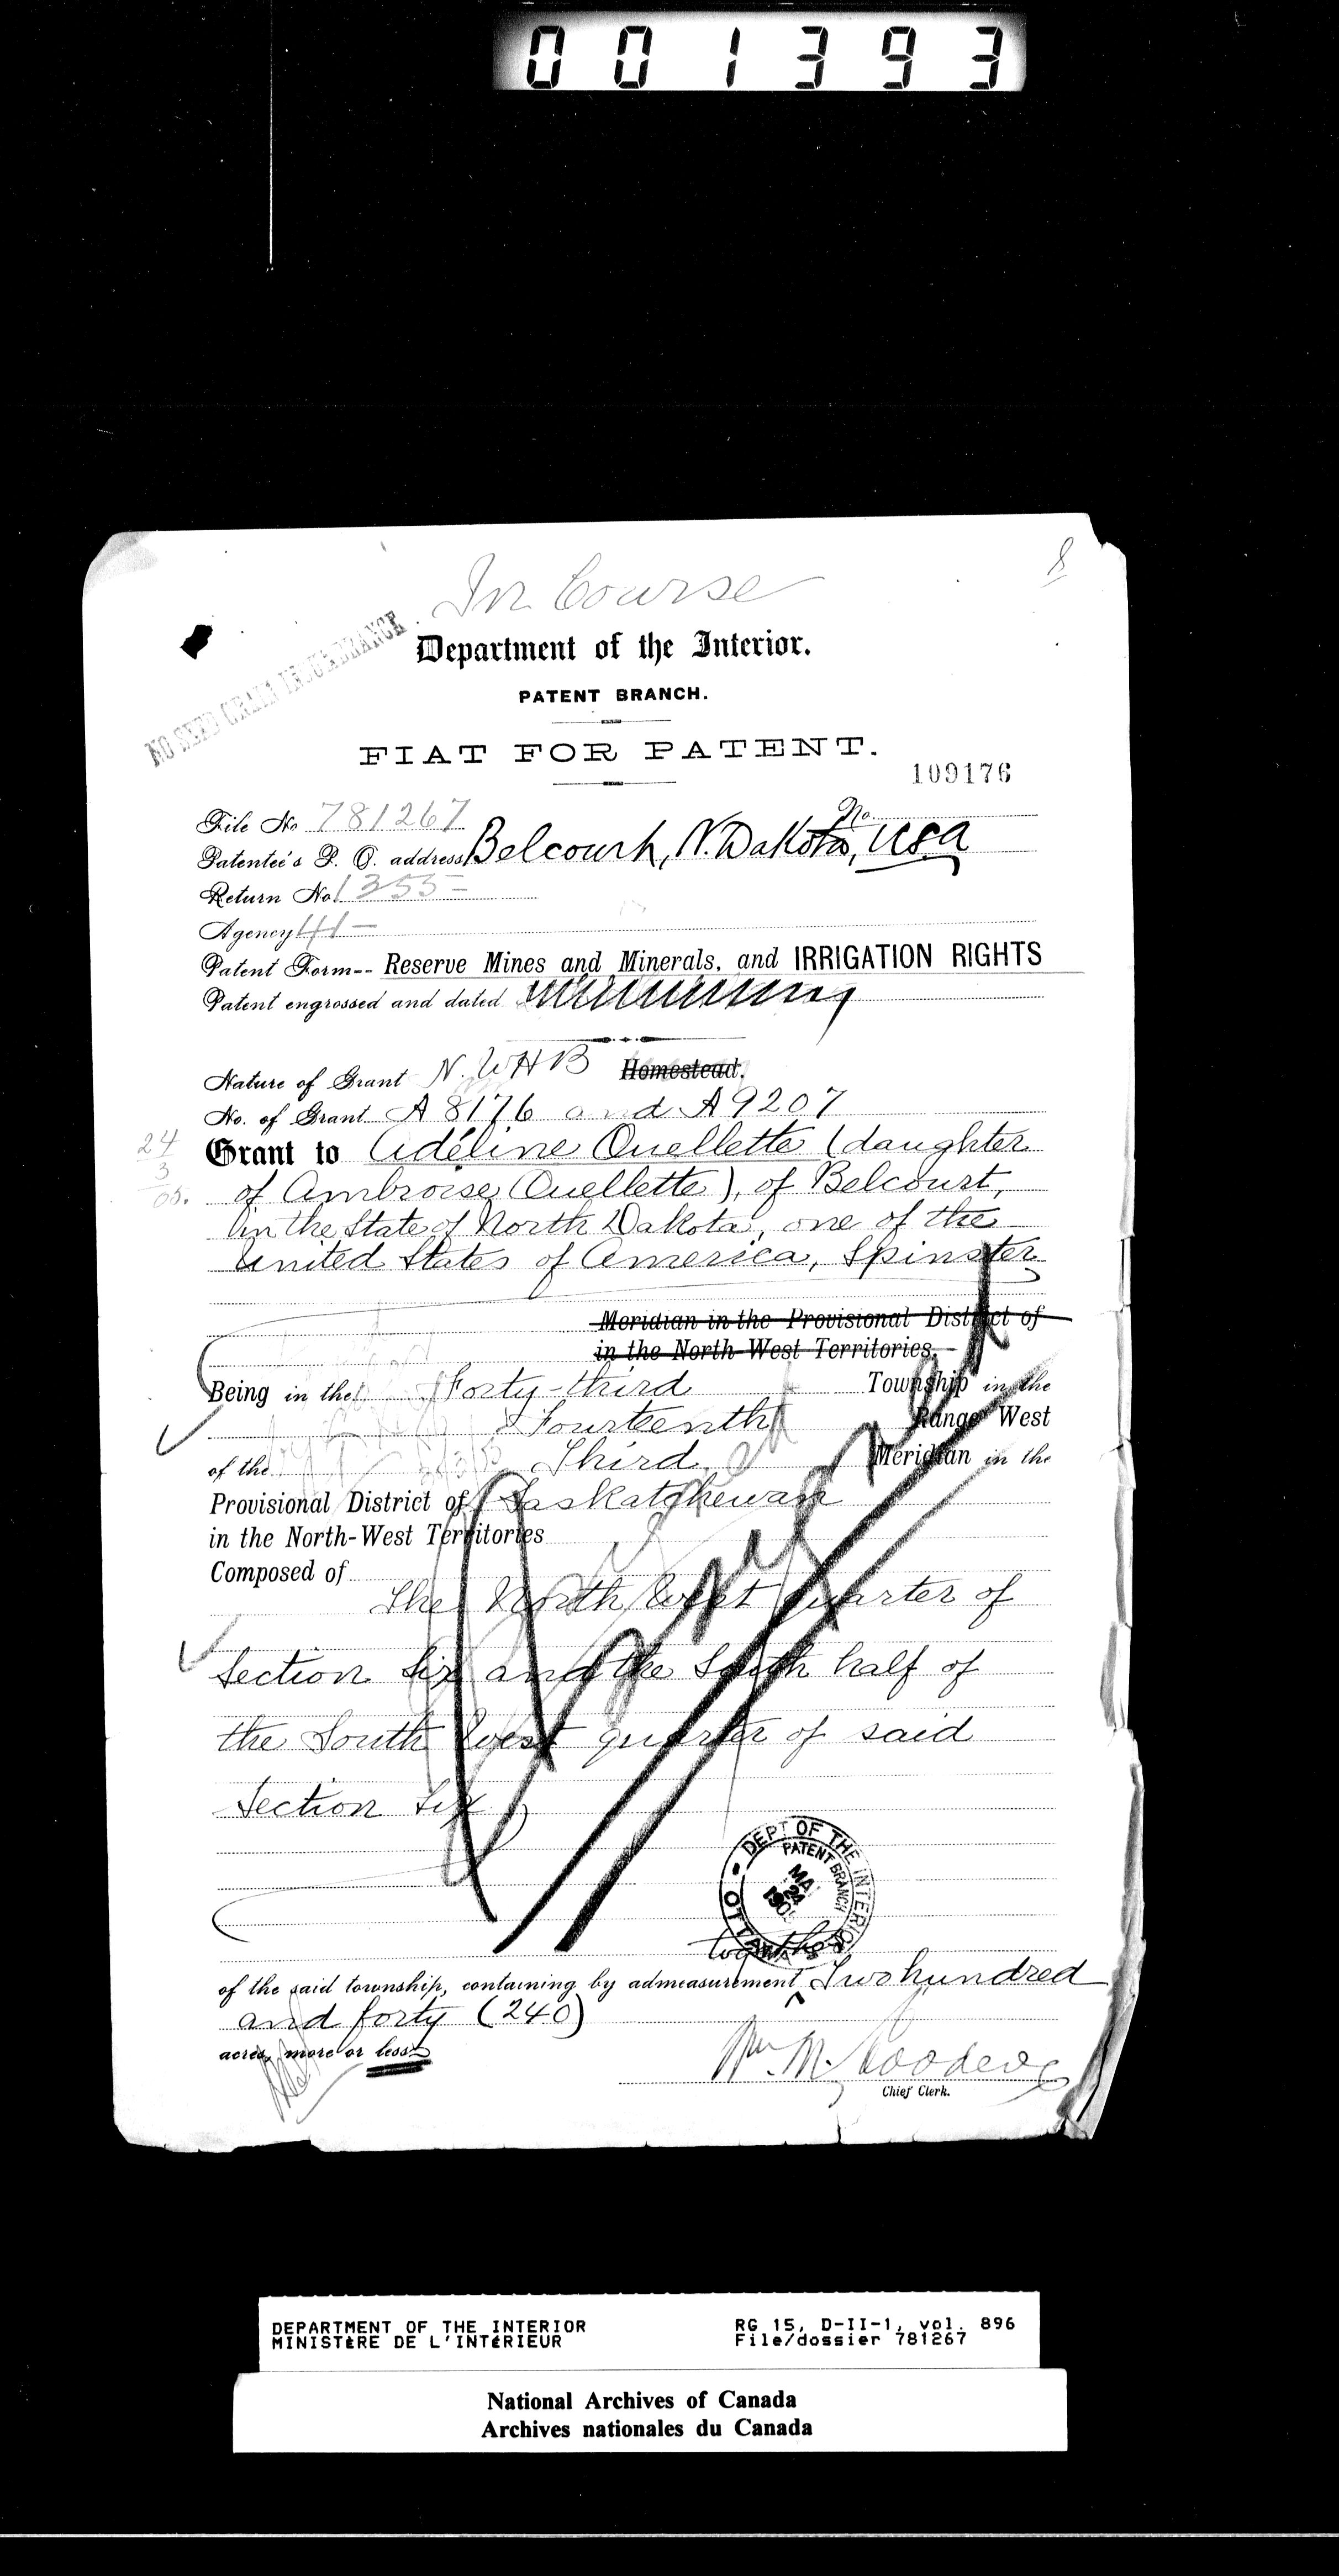 001393
In Course
8
NO SEED GRAIN INCUMBRANCE
Department of the Interior.
PATENT BRANCH.
FIAT FOR PATENT.
109176
File No 781267
No.
Patentee's P. O. address Belcourt, N. Dakota, USA
Return No. 1355-
Agency 41-
Patent Form-- Reserve Mines and Minerals, and IRRIGATION RIGHTS
Patent engrossed and dated
Nature of Grant N. W H B Homestead.
No. of Grant A 8176 and A 9207
24
3
05.
Grant to Adéline Ouellette (daughter
of Ambroise Ouellette), of Belcourt,
in the State of North Dakota, one of the
United States of America, Spinster
Meridian in the Provisional District of
in the North-West Territories.
Being in the Forty-third Township in the
Fourteenth Range West
of the Third Meridian in the
Provisional District of Saskatchewan
in the North-West Territories
Composed of
The North West quarter of
Section Six and the South half of
the South West quarter of said
Section Six
DEPT OF THE INTERIOR
PATENT BRANCH
OTTAWA
together
of the said township, containing by admeasurement Two hundred
and forty (240)
acres, more or less
Chief Clerk.
DEPARTMENT OF THE INTERIOR RG 15, D-II-1, vol. 896
MINISTÈRE DE L'INTÉRIEUR File/dossier 781267
National Archives of Canada
Archives nationales du Canada